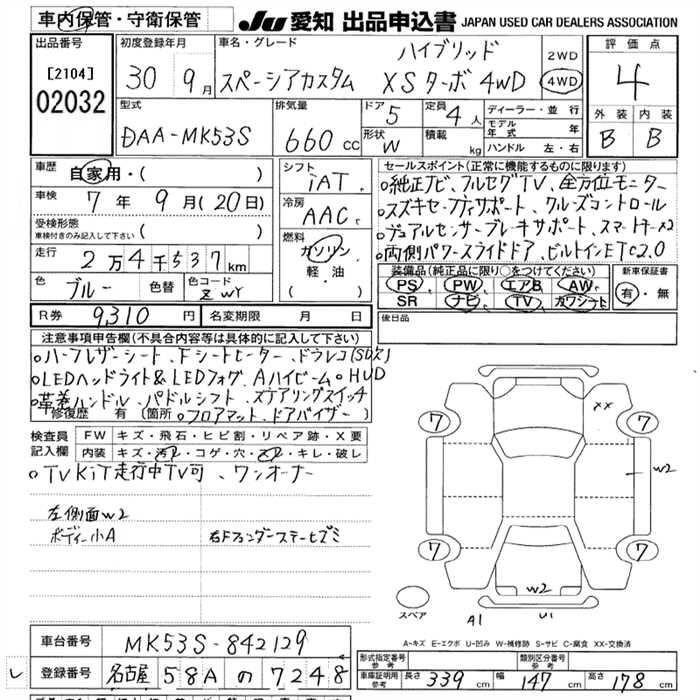 車内保管・守衛保管
JU 愛知 出品申込書 JAPAN USED CAR DEALERS ASSOCIATION
出品番号
[2104]
02032
初度登録年月
30 9月
車名・グレード
ハイブリッド
スペーシアカスタム XSターボ 4WD
2WD
4WD
評価点
4
型式
DAA-MK53S
排気量
660 cc
ドア 5
定員 4人
形状 W
積載 kg
ディーラー・並行
モデル年式 年
ハンドル 左・右
外装 内装
B B
車歴
自家用・( )
車検
7年 9月(20日)
受検形態
車検付きのみ記入して下さい ( )
走行
2万4千537km
色
ブルー
色替
色コード
ZWY
R券 9310円
名変期限 月 日
シフト
iAT
冷房
AAC
燃料
ガソリン
軽・油
( )
セールスポイント(正常に機能するものに限ります)
○純正ナビ、フルセグTV、全方位モニター
○スズキセーフティサポート、クルーズコントロール
○デュアルセンサーブレーキサポート、スマートキー×2
○両側パワースライドドア、ビルトインETC2.0
装備品(純正品に限り○をつけてください)
PS PW エアB AW
SR ナビ TV カワシート
新車保証書
有・無
後日品
注意事項申告欄(不具合内容等は具体的に記入して下さい)
○ハーフレザーシート、Fシートヒーター、ドラレコ(SD欠)
○LEDヘッドライト&LEDフォグ、Aハイビーム○HUD
○革巻ハンドル、パドルシフト、ステアリングスイッチ
修復歴 有 (箇所 ○フロアマット、ドアバイザー )
検査員記入欄
FW キズ・飛石・ヒビ割・リペア跡・X要
内装 キズ・汚レ・コゲ・穴・スレ・キレ・破レ
○TVKIT走行中TV可、ワンオーナー
左側面W2
ボディー小A
右Fフェンダーステーヒズミ
7 7
7 7
XX
W2
W2
スペア
A1 U1
A-キズ E-エクボ U-凹み W-補修跡 S-サビ C-腐食 XX-交換済
車台番号 MK53S-842129
登録番号 名古屋 58A の 7248
形式指定番号 参考
類別区分番号 参考
車庫証明用 参考
長さ 339cm 幅 147cm 高さ 178cm